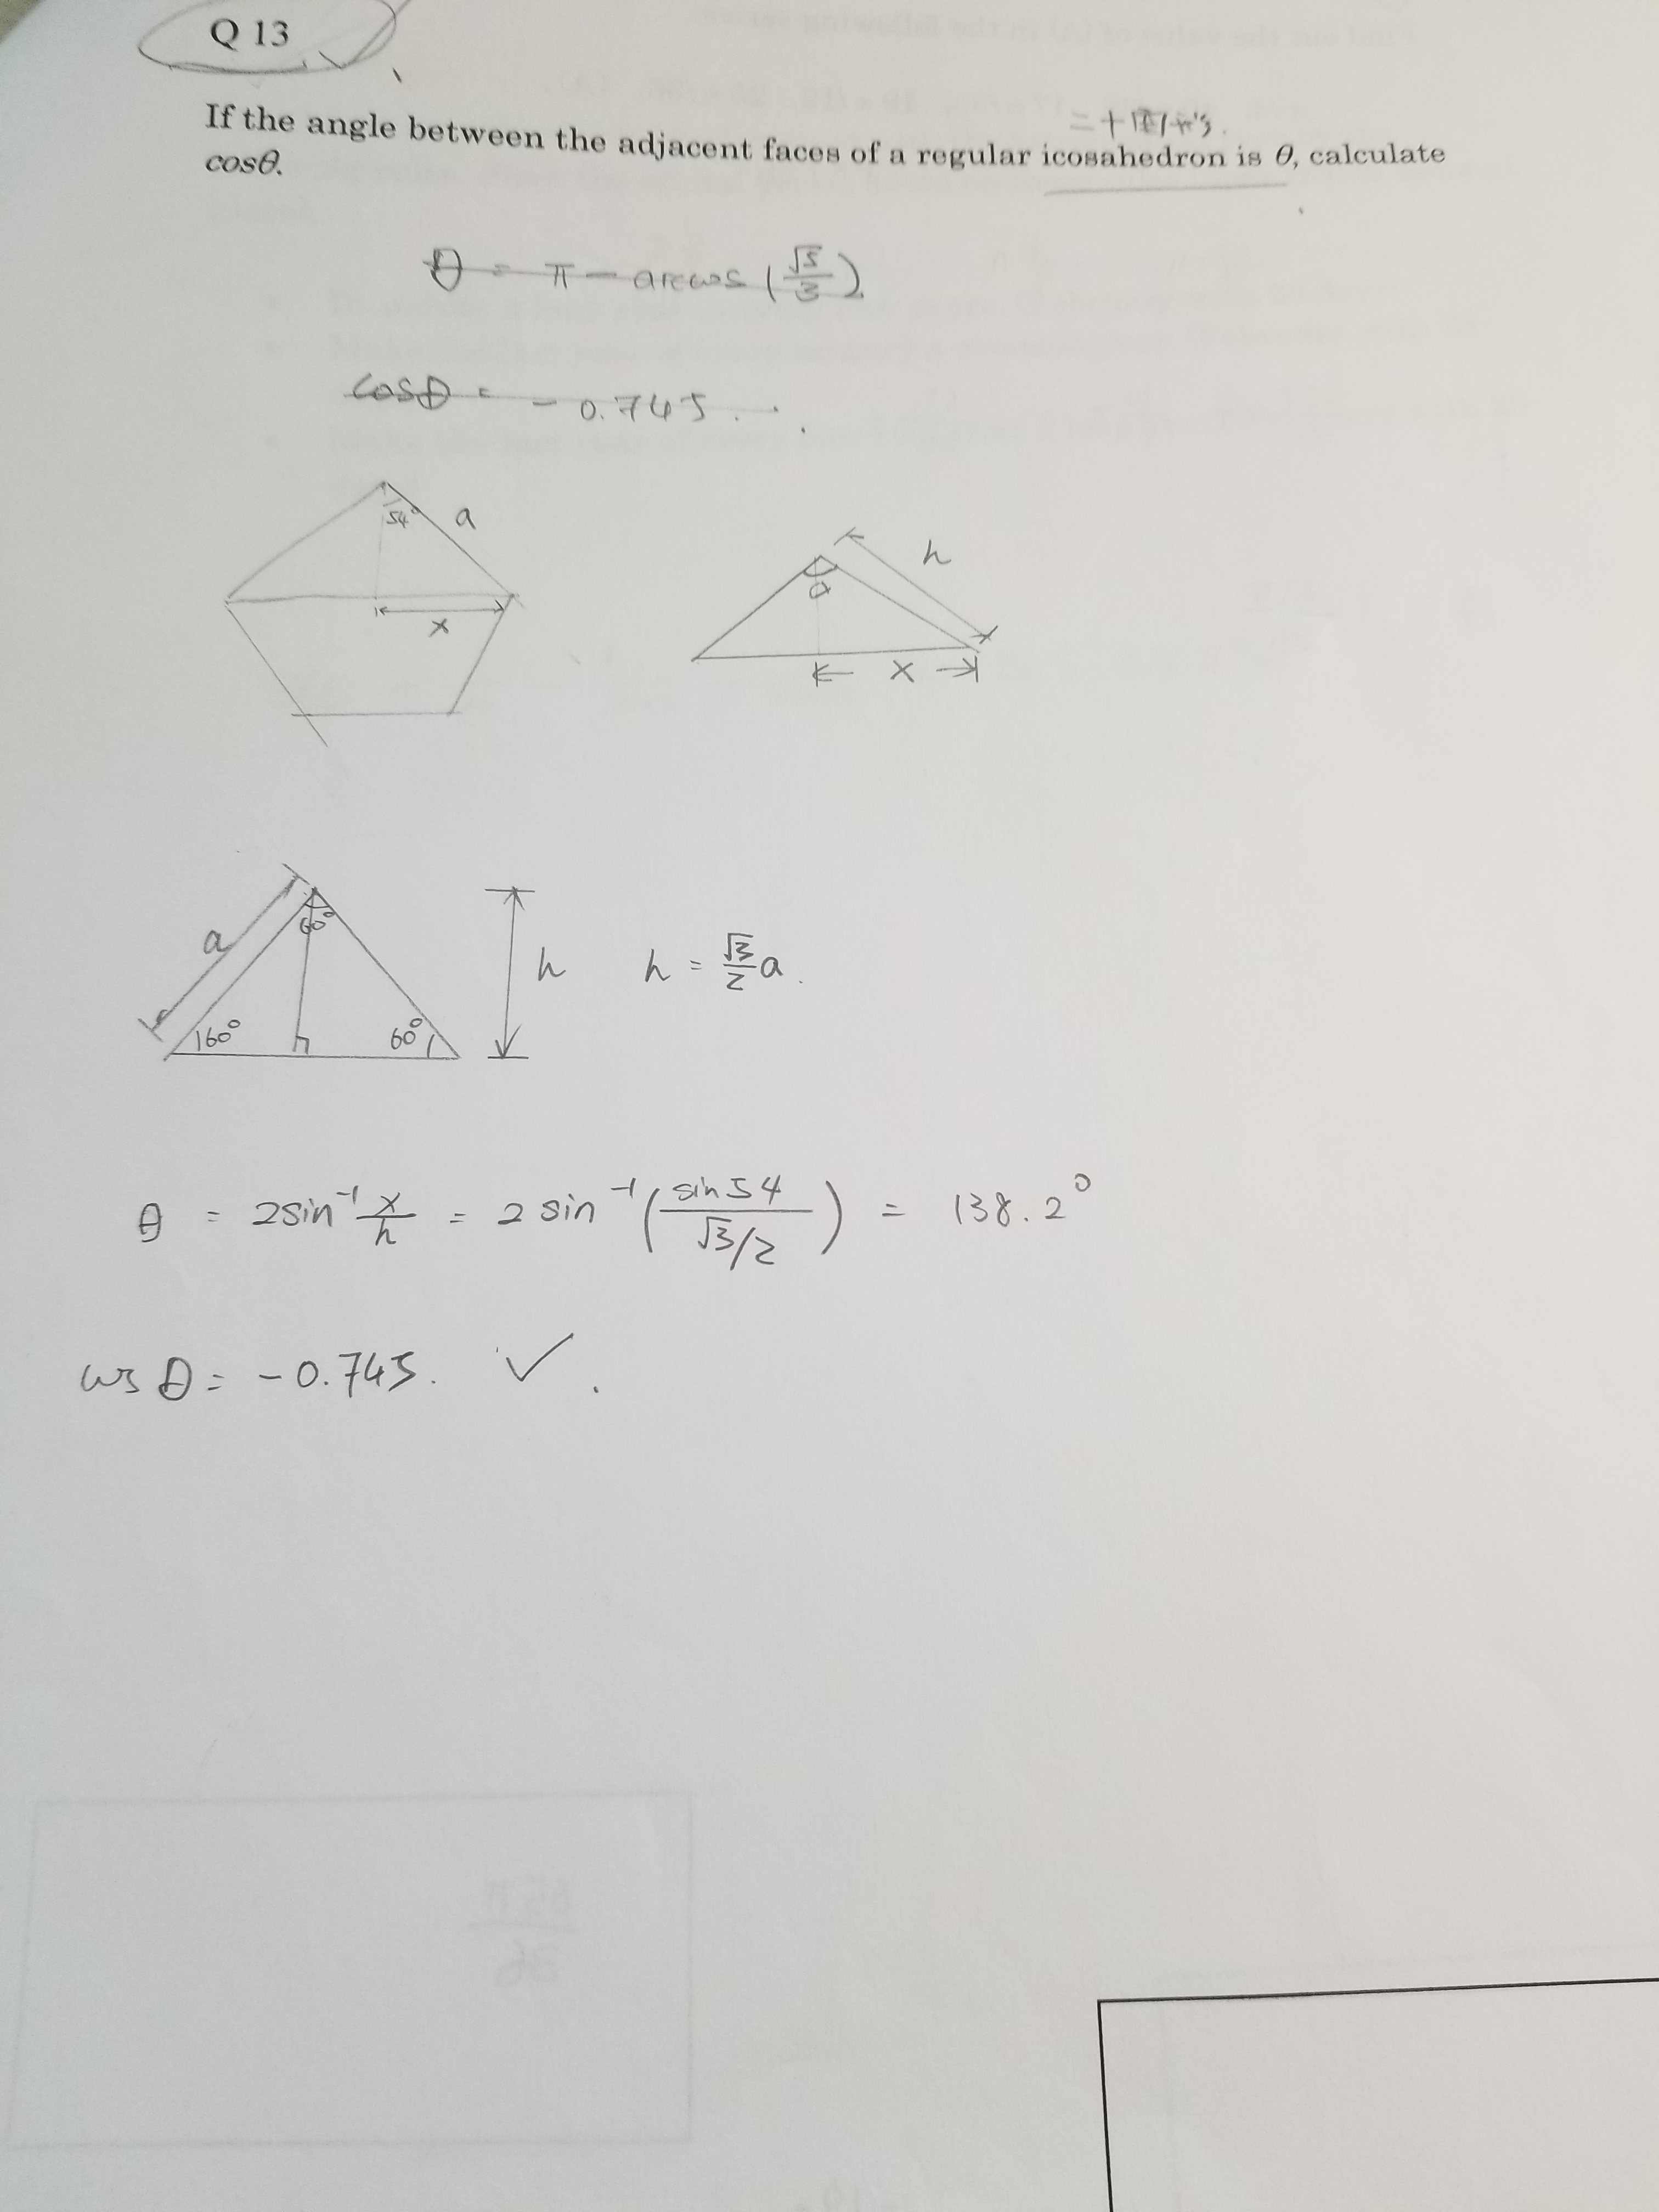 Q 13
If the angle between the adjacent faces of a regular icosahedron is θ, calculate
cosθ.
θ = π − arccos (√5/3)
cosθ = − 0.745 . .
54° a
x
h
θ
x
a
60°
60° 60°
h
h = √3/2 a.
θ = 2sin⁻¹ x/h = 2 sin⁻¹ (sin54 / √3/2) = 138.2°
cos θ = −0.745. ✓.